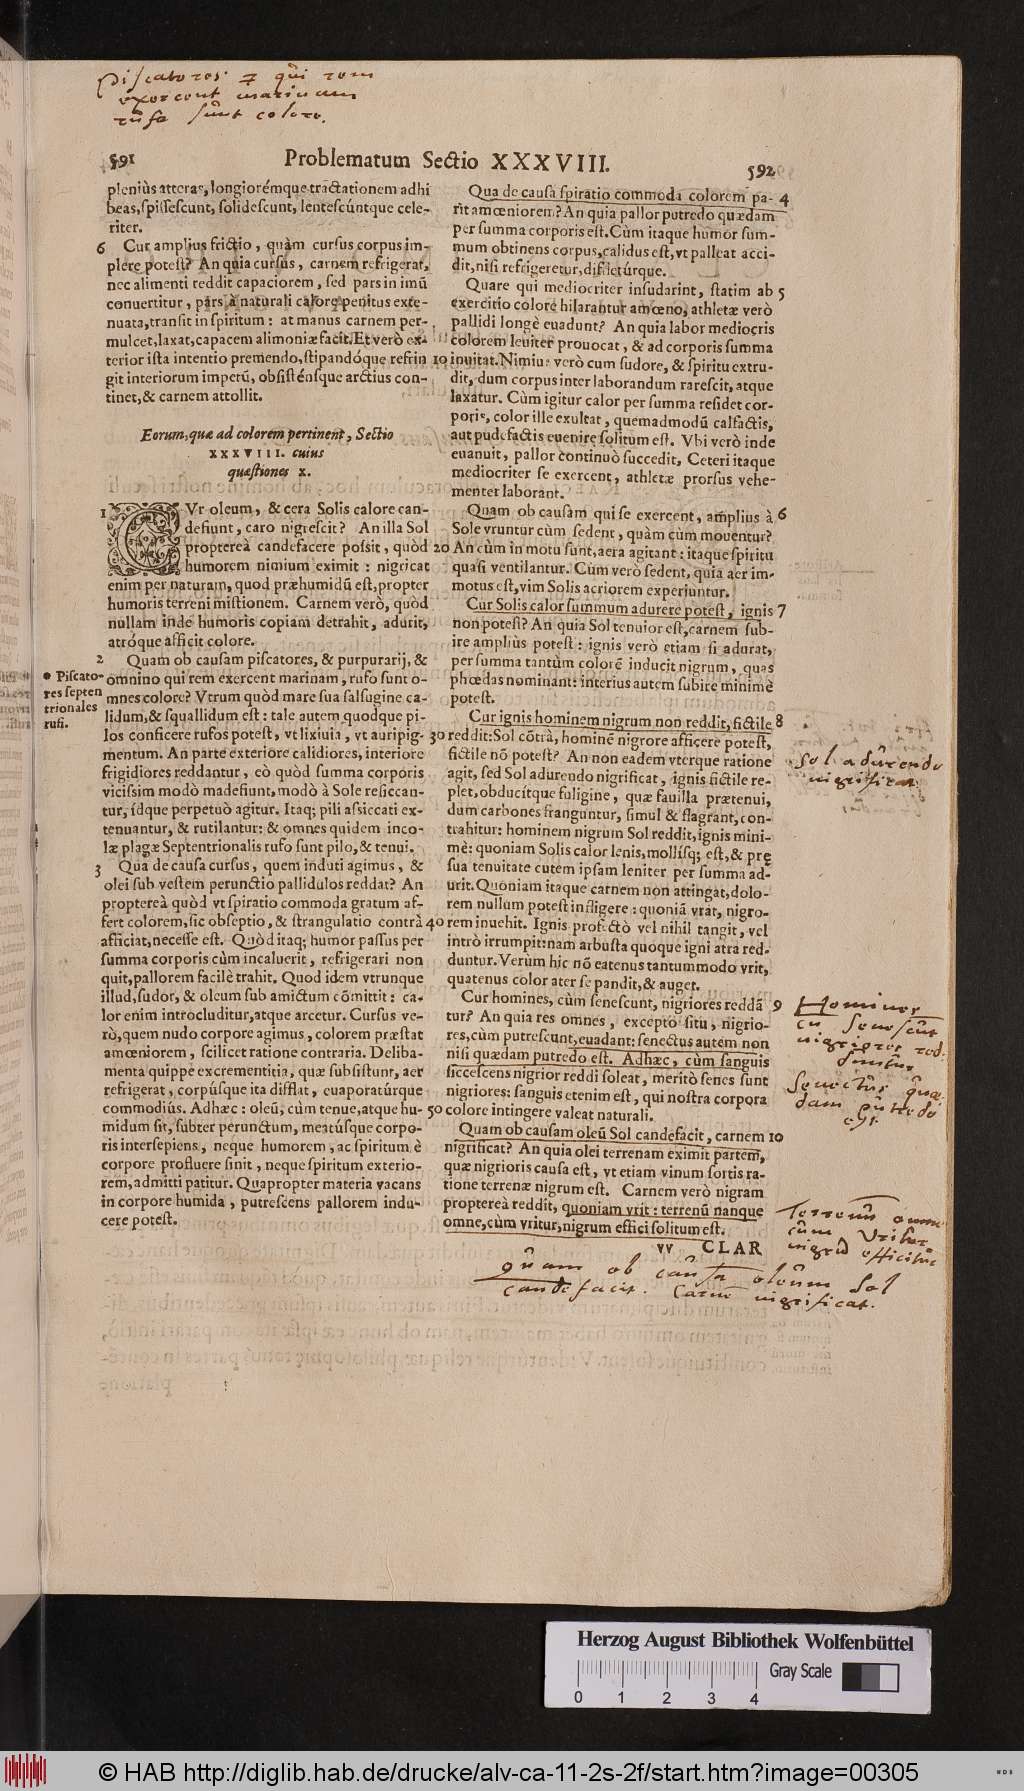 Piscatores: & qui rem
exercent marinam
rufo sunt colore.
591
Problematum Sectio XXXVIII.
592
pleniùs atteras, longiorémque tractationem adhi
beas, spissescunt, solidescunt, lentescúntque cele-
riter.
6 Cur amplius frictio, quàm cursus corpus im-
plere potest? An quia cursus, carnem refrigerat,
nec alimenti reddit capaciorem, sed pars in imũ
conuertitur, pars à naturali calore penitus exte-
nuata, transit in spiritum: at manus carnem per-
mulcet, laxat, capacem alimoniæ facit. Et verò ex-
terior ista intentio premendo, stipandóque restin
git interiorum imperũ, obsisténsque arctius con-
tinet, & carnem attollit.
Eorum, quæ ad colorem pertinent, Sectio
XXXVIII. cuius
quæstiones X.
1 CVr oleum, & cera Solis calore can-
defiunt, caro nigrescit? An illa Sol
proptereà candefacere possit, quòd
humorem nimium eximit: nigricat
enim per naturam, quod præhumidũ est, propter
humoris terreni mistionem. Carnem verò, quòd
nullam inde humoris copiam detrahit, adurit,
atróque afficit colore.
2 Quam ob causam piscatores, & purpurarij, &
omnino qui rem exercent marinam, rufo sunt o-
mnes colore? Vtrum quòd mare sua salsugine ca-
lidum, & squallidum est: tale autem quodque pi-
los conficere rufos potest, vt lixiuia, vt auripig-
mentum. An parte exteriore calidiores, interiore
frigidiores reddantur, eò quòd summa corporis
vicissim modò madefiunt, modò à Sole resiccan-
tur, ídque perpetuò agitur. Itaq; pili assiccati ex-
tenuantur, & rutilantur: & omnes quidem inco-
læ plagæ Septentrionalis rufo sunt pilo, & tenui.
* Piscato-
res septen
trionales
rufi.
3 Qua de causa cursus, quem induti agimus, &
olei sub vestem perunctio pallidulos reddat? An
proptereà quòd vt spiratio commoda gratum af-
fert colorem, sic obseptio, & strangulatio contrà
afficiat, necesse est. Quòd itaq; humor passus per
summa corporis cùm incaluerit, refrigerari non
quit, pallorem facilè trahit. Quod idem vtrunque
illud, sudor, & oleum sub amictum cõmittit: ca-
lor enim introcluditur, atque arcetur. Cursus ve-
rò, quem nudo corpore agimus, colorem præstat
amœniorem, scilicet ratione contraria. Deliba-
menta quippe excrementitia, quæ subsistunt, aer
refrigerat, corpúsque ita difflat, euaporatúrque
commodiús. Adhæc: oleũ, cùm tenue, atque hu-
midum sit, subter perunctum, meatúsque corpo-
ris intersepiens, neque humorem, ac spiritum è
corpore profluere sinit, neque spiritum exterio-
rem, admitti patitur. Quapropter materia vacans
in corpore humida, putrescens pallorem indu-
cere potest.
Qua de causa spiratio commoda colorem pa- 4
rit amœniorem? An quia pallor putredo quædam
per summa corporis est. Cùm itaque humor sum-
mum obtinens corpus, calidus est, vt palleat acci-
dit, nisi refrigeretur, diffletúrque.
Quare qui mediocriter insudarint, statim ab 5
exercitio colore hilarantur amœno, athletæ verò
pallidi longè euadunt? An quia labor mediocris
colorem leuiter prouocat, & ad corporis summa
10 inuitat. Nimius verò cum sudore, & spiritu extru-
dit, dum corpus inter laborandum rarescit, atque
laxatur. Cùm igitur calor per summa residet cor-
poris, color ille exultat, quemadmodũ calfactis,
aut pudefactis euenire solitum est. Vbi verò inde
euanuit, pallor continuò succedit, Ceteri itaque
mediocriter se exercent, athletæ prorsus vehe-
menter laborant.
Quam ob causam qui se exercent, amplius à 6
Sole vruntur cùm sedent, quàm cùm mouentur?
20 An cùm in motu sunt, aera agitant: itaque spiritu
quasi ventilantur. Cùm verò sedent, quia aer im-
motus est, vim Solis acriorem experiuntur.
Cur Solis calor summum adurere potest, ignis 7
non potest? An quia Sol tenuior est, carnem sub-
ire ampliùs potest: ignis verò etiam si adurat,
per summa tantùm colorẽ inducit nigrum, quas
phœdas nominant: interius autem subire minimè
potest.
Cur ignis hominem nigrum non reddit, fictile 8
30 reddit: Sol cõtrà, hominẽ nigrore afficere potest,
fictile nõ potest? An non eadem vterque ratione
agit, sed Sol adurendo nigrificat, ignis fictile re-
plet, obducítque fuligine, quæ fauilla prætenui,
dum carbones franguntur, simul & flagrant, con-
trahitur: hominem nigrum Sol reddit, ignis mini-
mè: quoniam Solis calor lenis, mollísq; est, & prę
sua tenuitate cutem ipsam leniter per summa ad-
urit. Quoniam itaque carnem non attingat, dolo-
rem nullum potest infligere: quoniã vrat, nigro-
40 rem inuehit. Ignis profectò vel nihil tangit, vel
intrò irrumpit: nam arbusta quoque igni atra red-
duntur. Verùm hic nõ eatenus tantummodo vrit,
quatenus color ater se pandit, & auget.
Cur homines, cùm senescunt, nigriores reddã 9
tur? An quia res omnes, excepto situ, nigrio-
res, cùm putrescunt, euadant: senectus autem non
nisi quædam putredo est. Adhæc, cùm sanguis
siccescens nigrior reddi soleat, meritò senes sunt
nigriores: sanguis etenim est, qui nostra corpora
50 colore intingere valeat naturali.
Quam ob causam oleũ Sol candefacit, carnem 10
nigrificat? An quia olei terrenam eximit partem,
quæ nigrioris causa est, vt etiam vinum fortis ra-
tione terrenæ nigrum est. Carnem verò nigram
proptereà reddit, quoniam vrit: terrenũ nanque
omne, cùm vritur, nigrum effici solitum est.
VV CLAR
Sol adurendo
nigrificat.
Homines
cũ senescũt
nigriores red-
duntur
Senectus quæ
dam putredo
est.
Terrenũ omne
cùm Vritur
nigrũ efficitur
Quam ob causa oleum Sol
candefacit. Carnẽ nigrificat.
Herzog August Bibliothek Wolfenbüttel
Gray Scale
0 1 2 3 4
© HAB http://diglib.hab.de/drucke/alv-ca-11-2s-2f/start.htm?image=00305